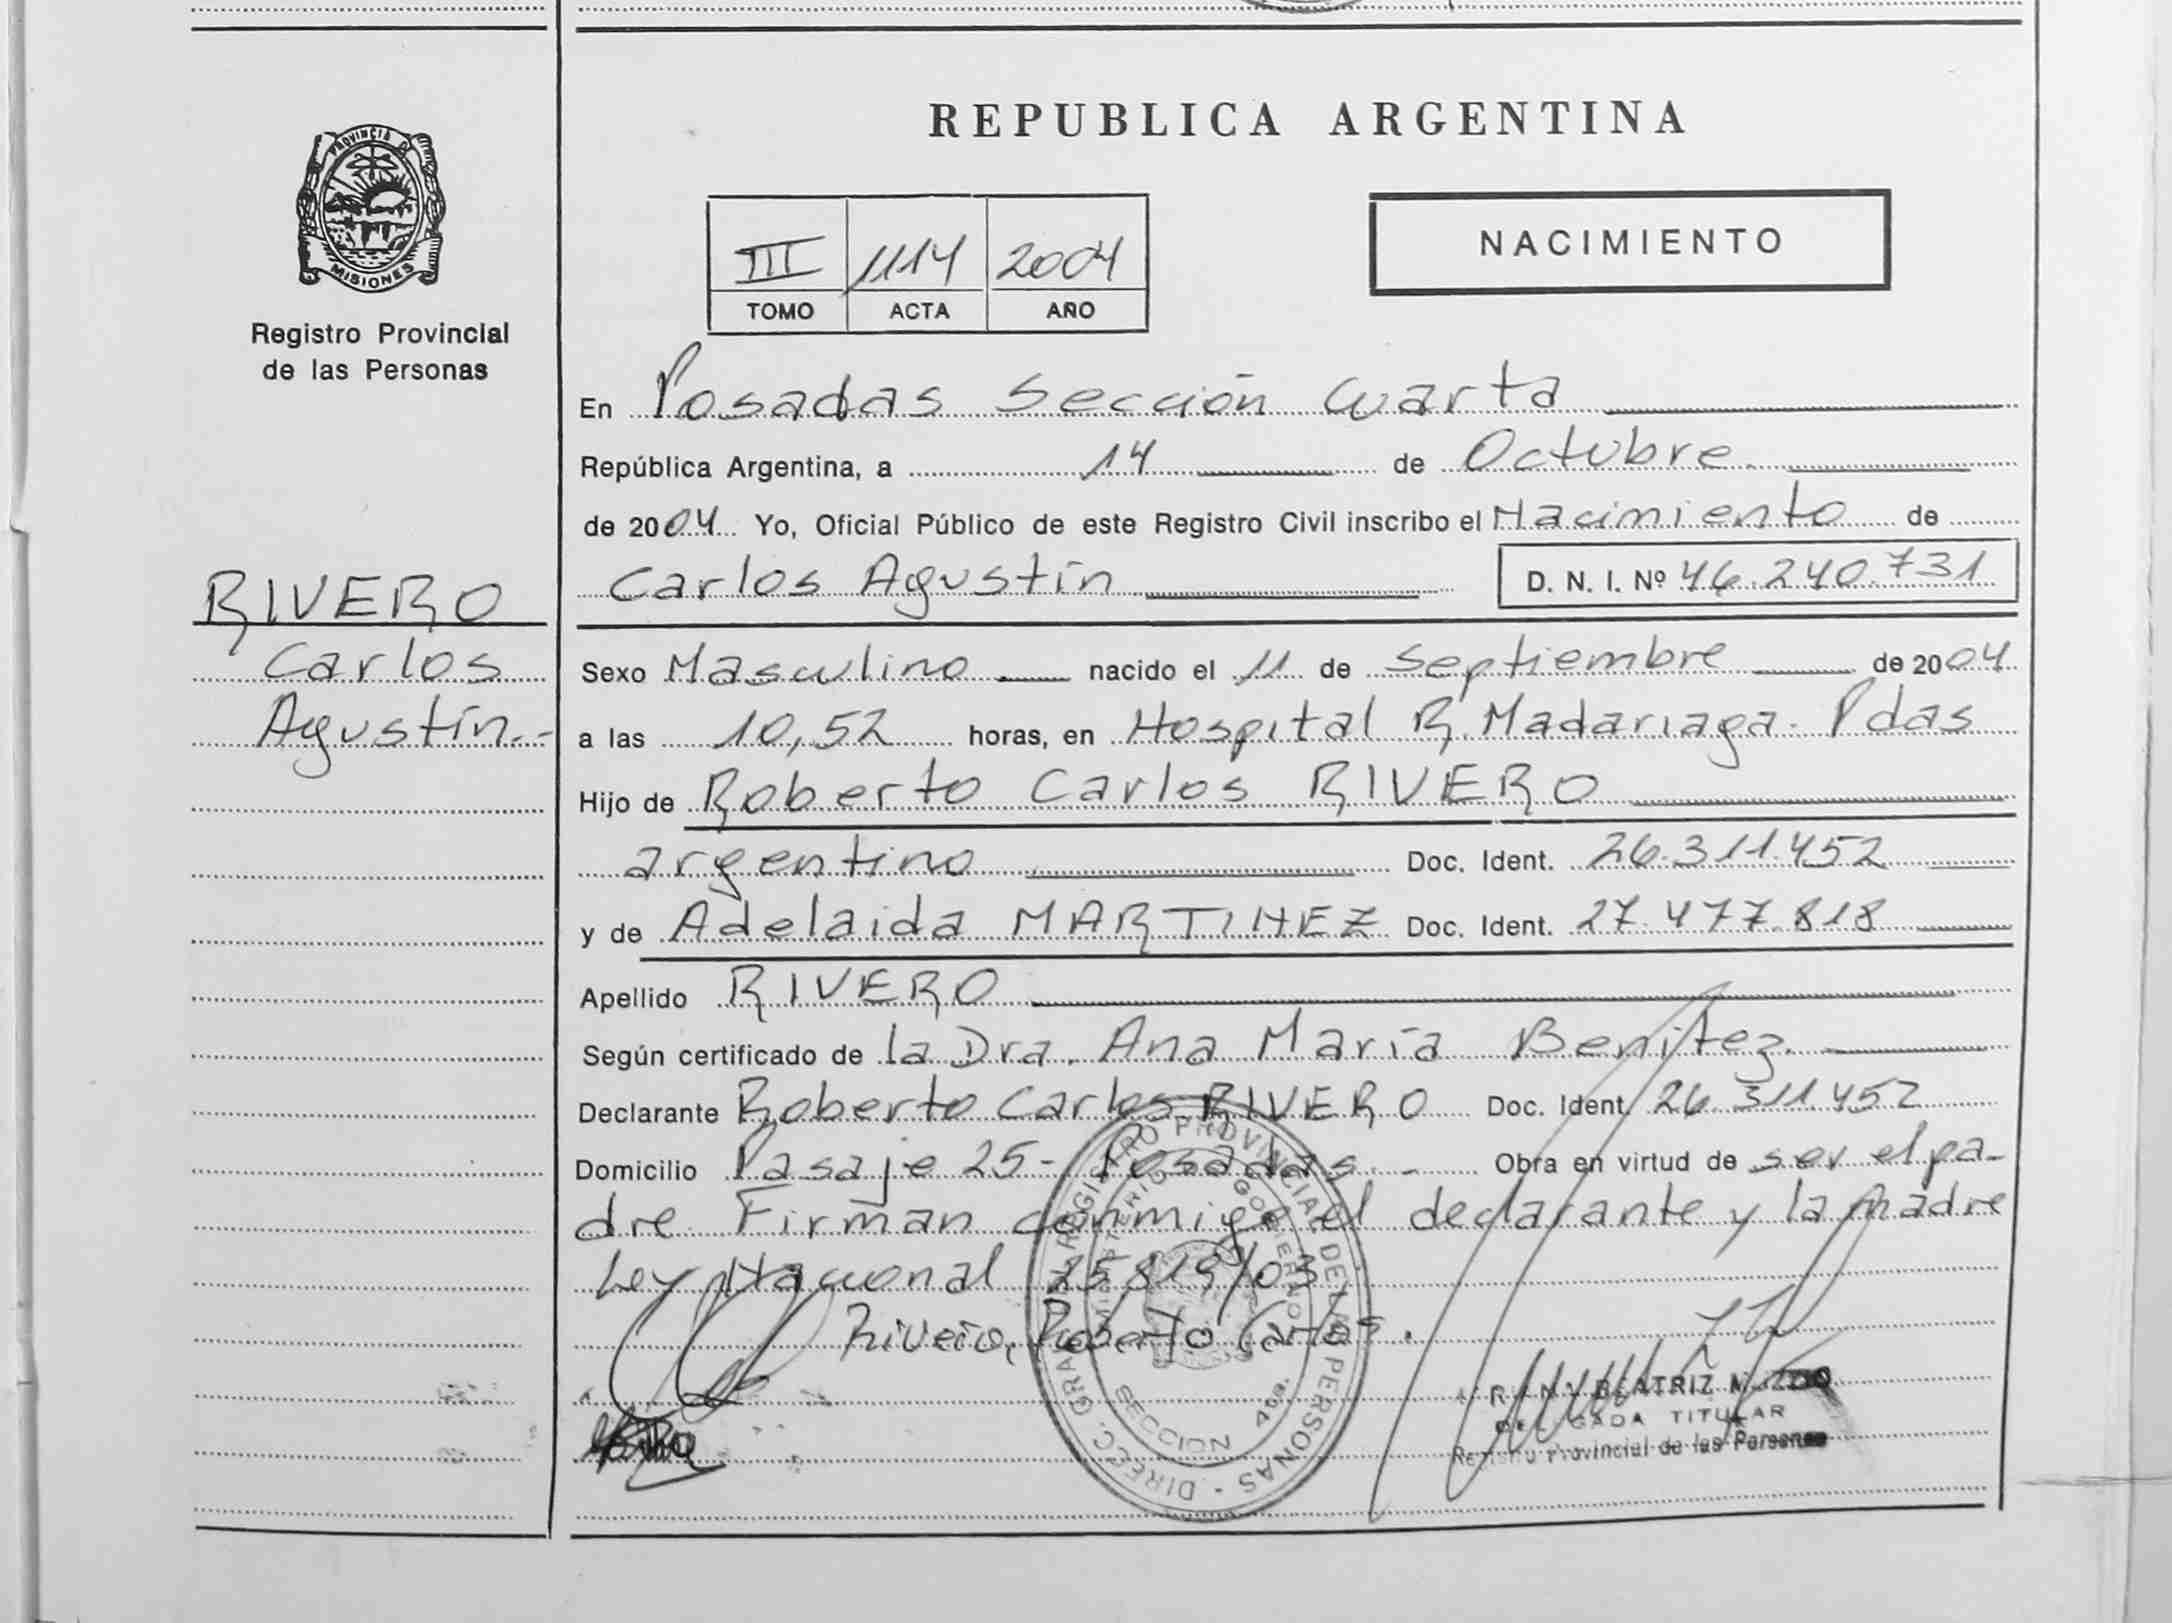 REPUBLICA ARGENTINA
PROVINCIA D
MISIONES
Registro Provincial
de las Personas
III 1114 2004
TOMO ACTA AÑO
NACIMIENTO
En Posadas Sección Cuarta
República Argentina, a 14 de Octubre.
de 2004 Yo, Oficial Público de este Registro Civil inscribo el Nacimiento de
Carlos Agustín D. N. I. Nº 46.240.731
RIVERO
Carlos
Agustín.-
Sexo Masculino nacido el 11 de Septiembre de 2004
a las 10,52 horas, en Hospital R. Madariaga- Pdas
Hijo de Roberto Carlos RIVERO
argentino Doc. Ident. 26.311.452
y de Adelaida MARTINEZ Doc. Ident. 27.477.818
Apellido RIVERO
Según certificado de la Dra. Ana María Benítez.
Declarante Roberto Carlos RIVERO Doc. Ident. 26.311.452
Domicilio Pasaje 25- Posadas.- Obra en virtud de ser el pa-
dre Firman conmigo el declarante y la Madre
Ley Nacional 25819/03
Rivero, Roberto Carlos.
DIREC. GRAL. REGISTRO PROVINCIAL DE LAS PERSONAS -
MINISTERIO GOBIERNO
SECCION 4ta.
BEATRIZ
DELEGADA TITULAR
Registro Provincial de las Personas